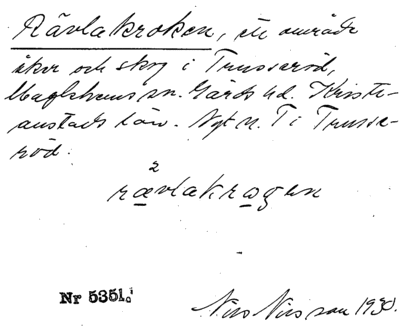 Rävlakroken, ett område
åker och skog i Trusseröd,
Maglehems sn. Gärds hd. Kristi-
anstads län. Nyt n. T i Trusse-
röd.
2
rävlakrogen
Nr 5351.
Nils Nilsson 1930.